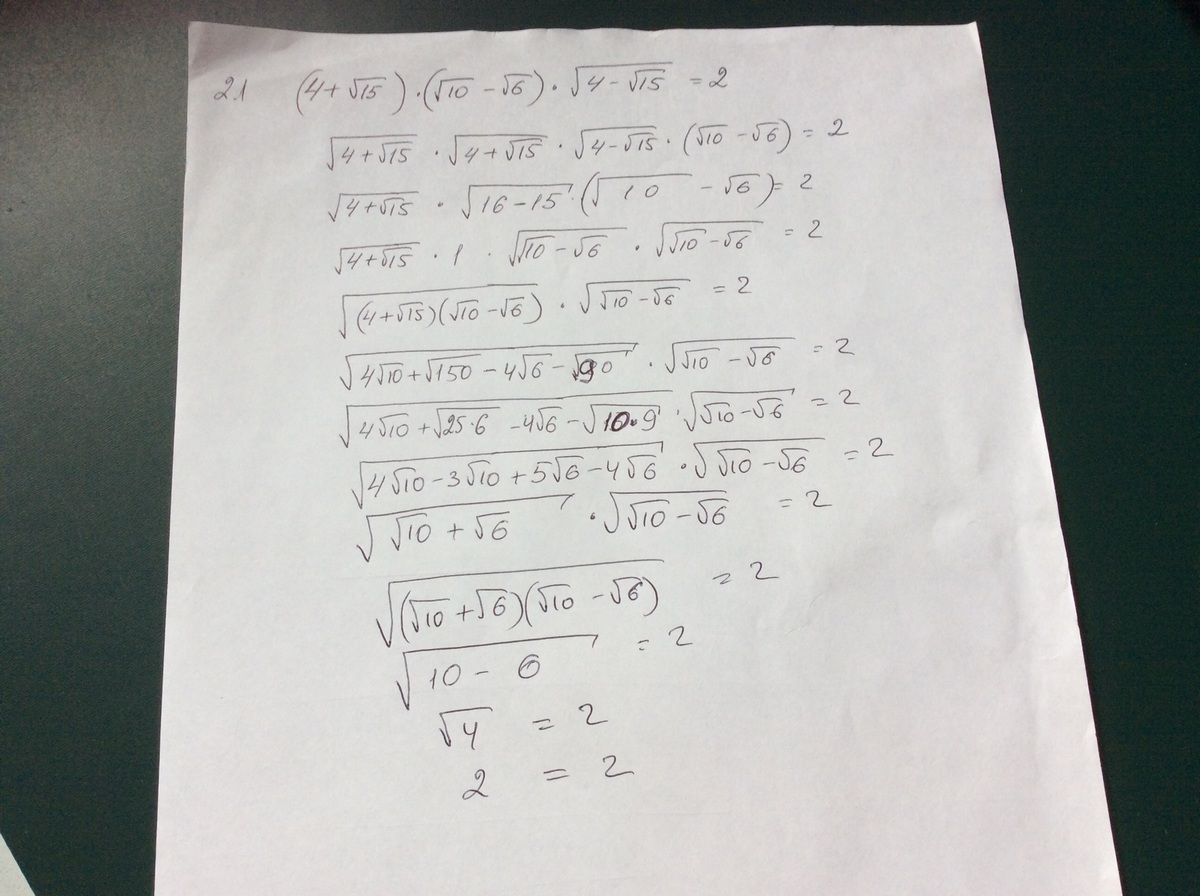 21 (4+√15)·(√10-√6)·√(4-√15) =2
√(4+√15) · √(4+√15) · √(4-√15) · (√10-√6) = 2
√(4+√15) · √(16-15) · (√10 - √6) = 2
√(4+√15) · 1 · √(√10-√6) · √(√10-√6) = 2
√((4+√15)(√10-√6)) · √(√10-√6) = 2
√(4√10+√150-4√6-√90) · √(√10-√6) = 2
√(4√10+√(25·6)-4√6-√(10·9)) · √(√10-√6) = 2
√(4√10-3√10+5√6-4√6) · √(√10-√6) = 2
√(√10+√6) · √(√10-√6) = 2
√((√10+√6)(√10-√6)) = 2
√(10-6) = 2
√4 = 2
2 = 2